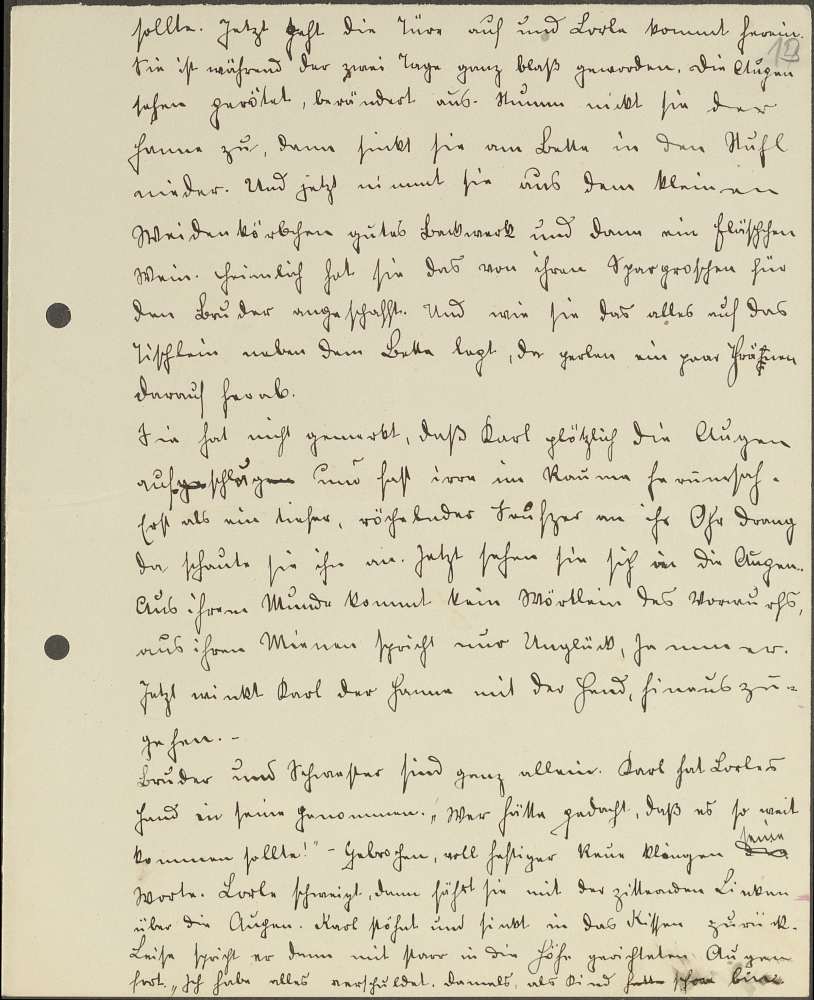 sollte. Jetzt geht die Türe auf und Lorle kommt herein.
13
Sie ist während der zwei Tage ganz blaß geworden. Die Augen
sehen gerötet, verändert aus. Stumm nickt sie der
Hanne zu, dann sinkt sie am Bette in den Stuhl
nieder. Und jetzt nimmt sie aus dem kleinen
Weidenkörbchen gutes Backwerk und dann ein Fläschchen
Wein. Heimlich hat sie das von ihren Spargroschen für
den Bruder angeschafft. Und wie sie das alles auf das
Tischlein neben dem Bette legt, da perlen ein paar Thränen
darauf herab.
Sie hat nicht gemerkt, daß Karl plötzlich die Augen
aufschlug und fast irre im Raume herumsah.
Erst als ein tiefer, röchelnder Seufzer an ihr Ohr drang
da schaute sie ihn an. Jetzt sehen sie sich in die Augen.
Aus ihrem Munde kommt kein Wörtlein des Vorwurfs,
aus ihren Mienen spricht nur Unglück, Jammer.
Jetzt winkt Karl der Hanne mit der Hand, hinauszu-
gehen. -
Bruder und Schwester sind ganz allein. Karl hat Lorles
Hand in seine genommen. „Wer hätte gedacht, daß es so weit
kommen sollte!" - Gebrochen, voll heftiger Reue klingen seine
Worte. Lorle schweigt, dann fährt sie mit der zitternden Linken
über die Augen. Karl stöhnt und sinkt in das Kissen zurück.
Leise spricht er dann mit starr in die Höhe gerichteten Augen
fort. „Ich habe alles verschuldet. Damals, als Kind schon